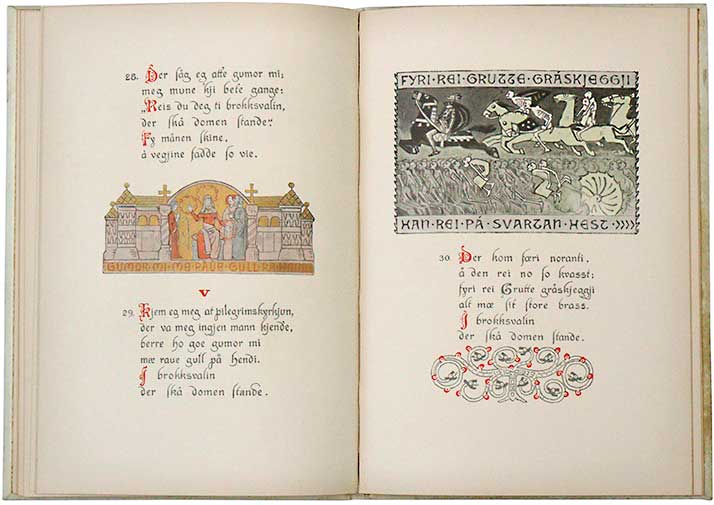 28. Der såg eg atte gumor mi;
meg mune kji bete gange:
"Reis du deg ti brokksvalin,
der ska domen stande."
Fy månen skine,
å vegjine fadde so vie.
GUMOR MI MÆ RAUE GULL
V
29. Kjem eg meg at pilegrimskyrkjun,
der va meg ingjen mann kjende,
berre ho goe gumor mi
mæ raue gull på hendi.
I brokksvalin
der ska domen stande.
FYRI REI GRUTTE GRÅSKJEGGJI
HAN REI PÅ SVARTAN HEST
30. Der kom færi noranti,
å den rei no so kvasst;
fyri rei Grutte gråskjeggji
alt mæ sit store brass.
I brokksvalin
der ska domen stande.